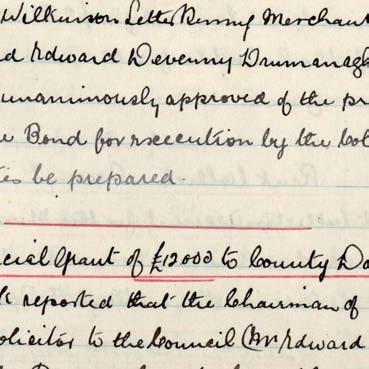 Wilkinson Letterkenny Merchant
nd Edward Devenny Drumanagh
unanimously approved of the pr
e Bond for execution by the Col
ies be prepared.
ecial Grant of £12000 to County Do
k reported that the Chairman of
olicitor to the Council (Mr Edward